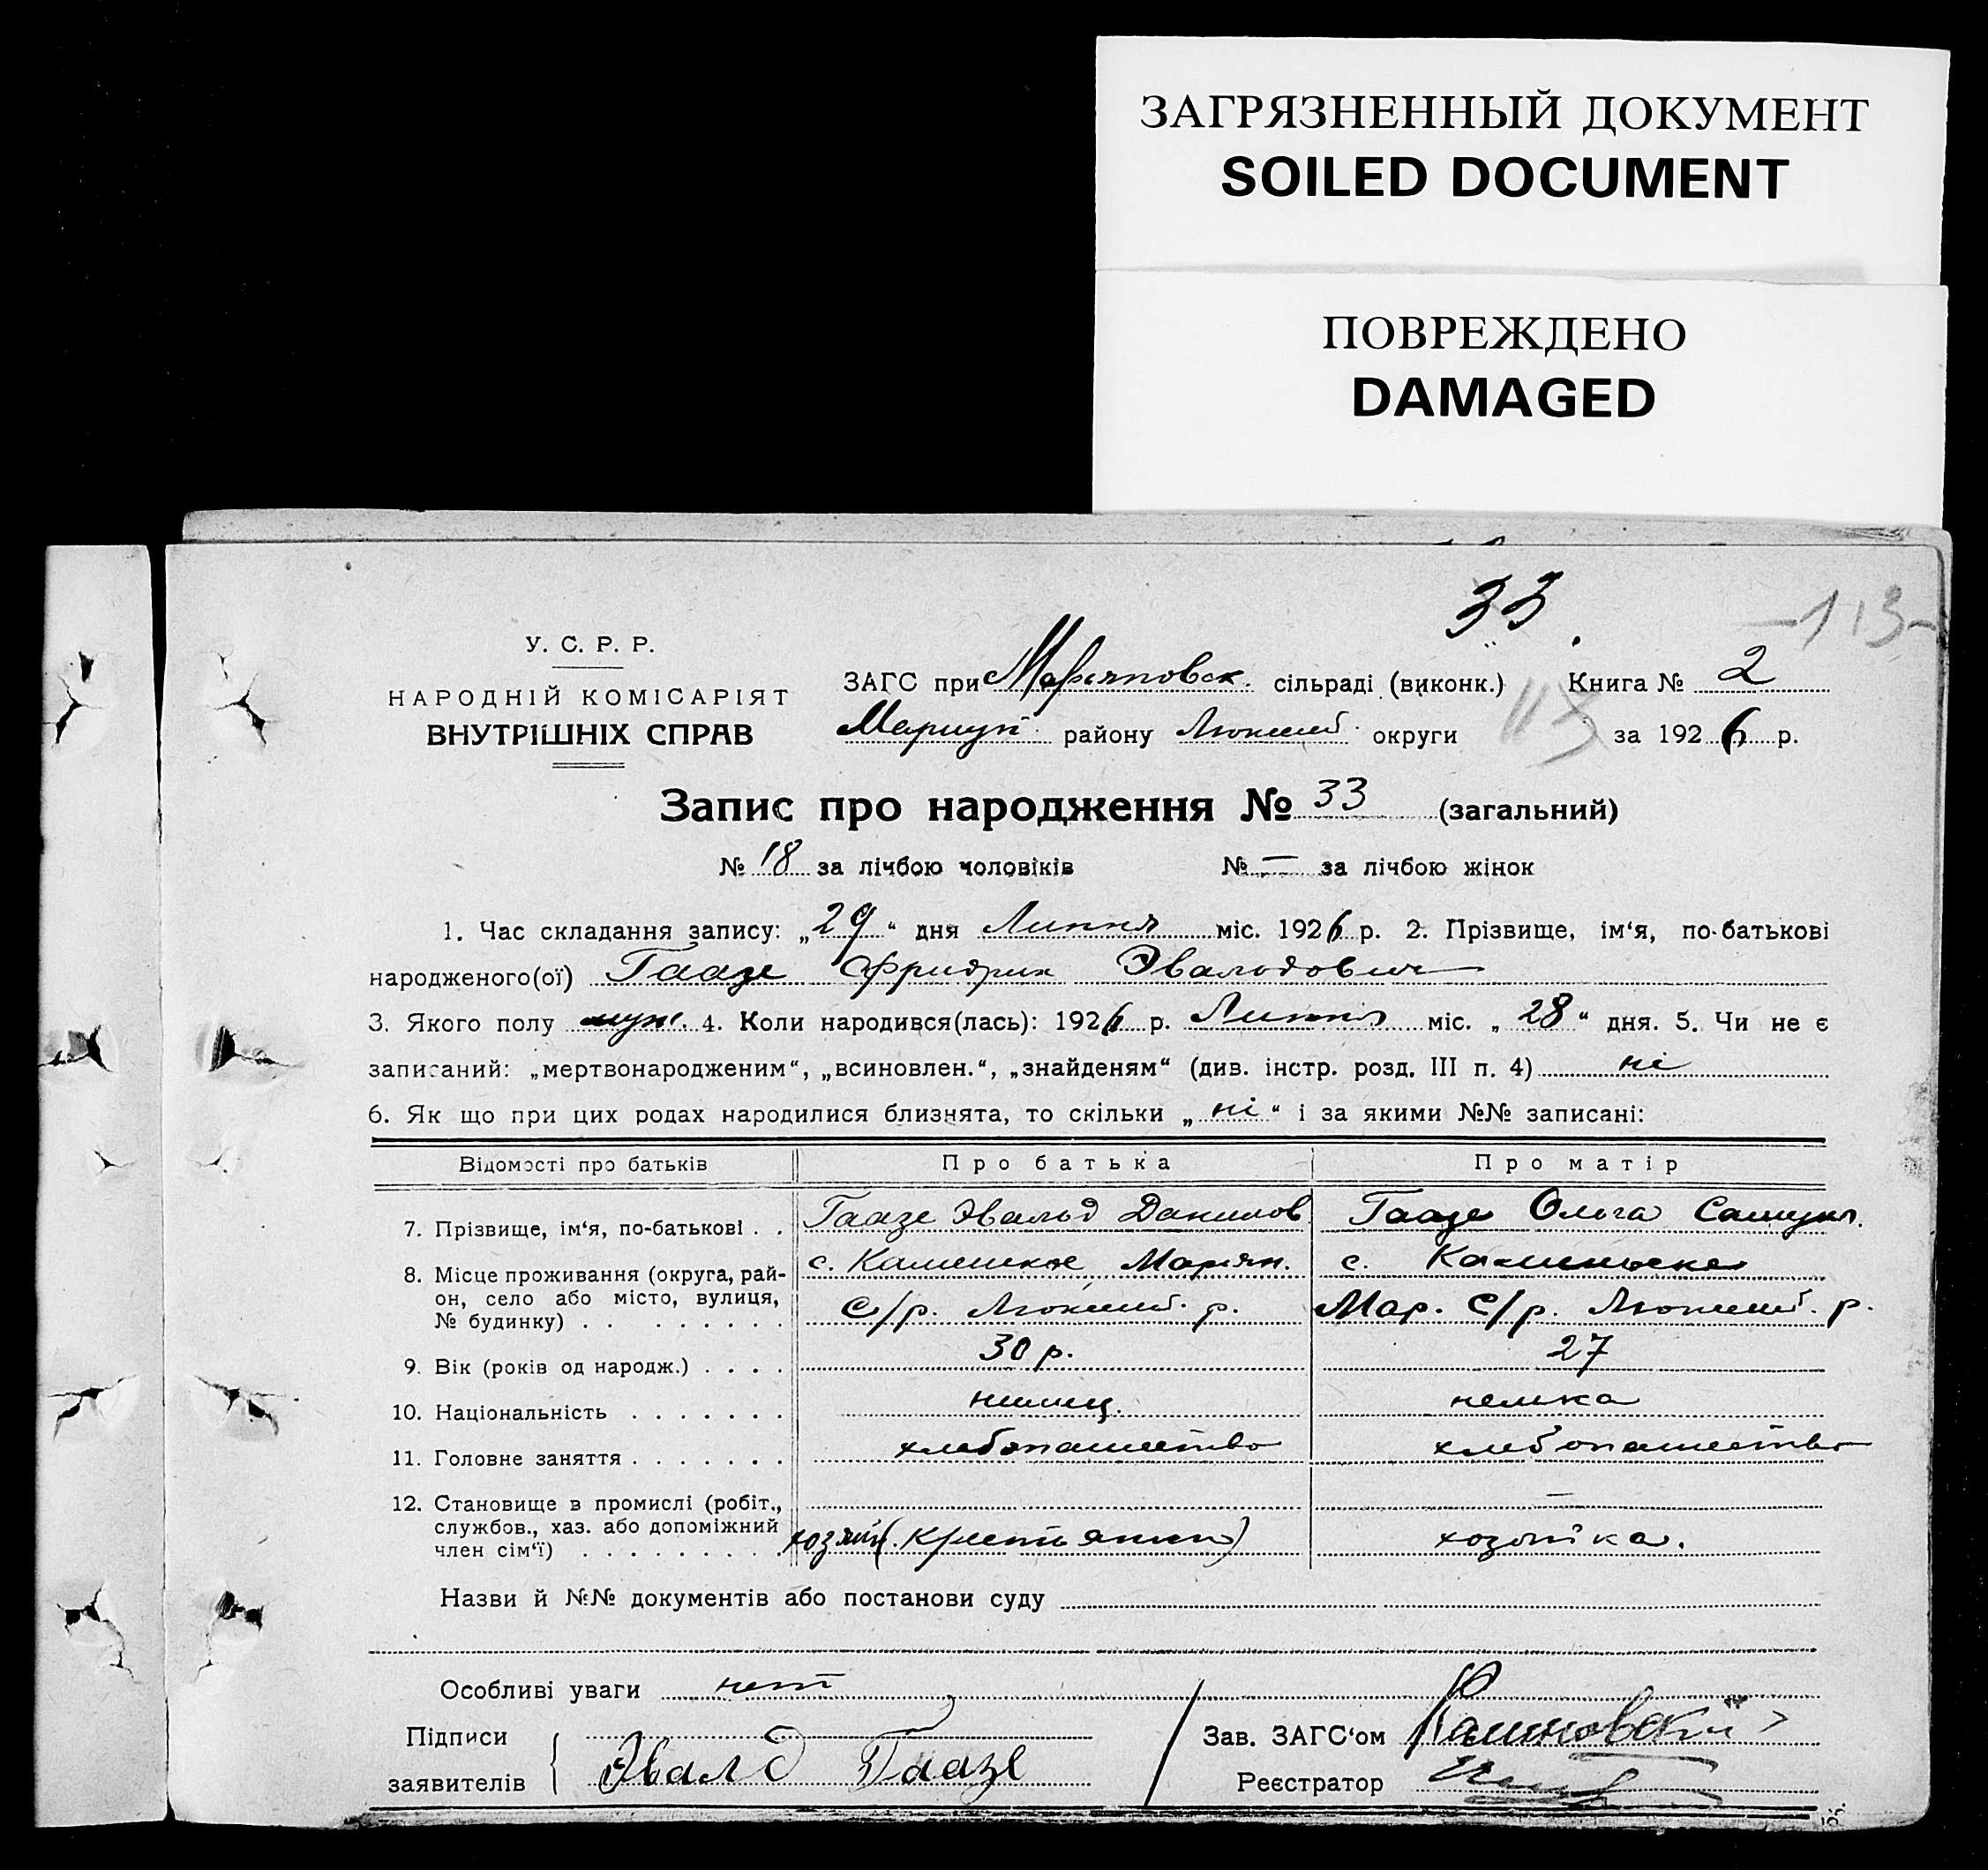 ЗАГРЯЗНЕННЫЙ ДОКУМЕНТ
SOILED DOCUMENT
ПОВРЕЖДЕНО
DAMAGED
33
-113-
У. С. Р. Р.
НАРОДНІЙ КОМІСАРІЯТ
ВНУТРІШНІХ СПРАВ
ЗАГС при Марьяновск. сільраді (виконк.) Книга № 2
району округи 113 за 1926 р.
Запис про народження № 33 (загальний)
№ 18 за лічбою чоловіків № — за лічбою жінок
1. Час складання запису: „29“ дня Липня міс. 1926 р. 2. Прізвище, ім‘я, по-батькові
народженого(ої) Гаазе Фридрих Эвальдович
3. Якого полу муж. 4. Коли народився(лась): 1926 р. Липня міс. „28“ дня. 5. Чи не є
записаний: „мертвонародженим“, „всиновлен.“, „знайденям“ (див. інстр. розд. III п. 4) ні
6. Як що при цих родах народилися близнята, то скільки „ні“ і за якими №№ записані:
Відомості про батьків Про батька Про матір
7. Прізвище, ім‘я, по-батькові . . Гаазе Эвальд Данилов Гаазе Ольга
8. Місце проживання (округа, рай-
он, село або місто, вулиця,
№ будинку) . . . . . . . .
с. Марьян. с.
С/р. р. Мар. С/р. р.
9. Вік (років од народж.) . . . . 30 р. 27
10. Національність . . . . . . . немец. немка
11. Головне заняття . . . . . . . хлебопашество хлебопашество
12. Становище в промислі (робіт.,
службов., хаз. або допоміжний
член сім‘ї) . . . . . . . . .
—
хозяин (крестьянин) хозяйка.
Назви й №№ документів або постанови суду
Особливі уваги нет
Підписи
заявителів Эвалд Гаазе
Зав. ЗАГС‘ом Калиновский
Реєстратор